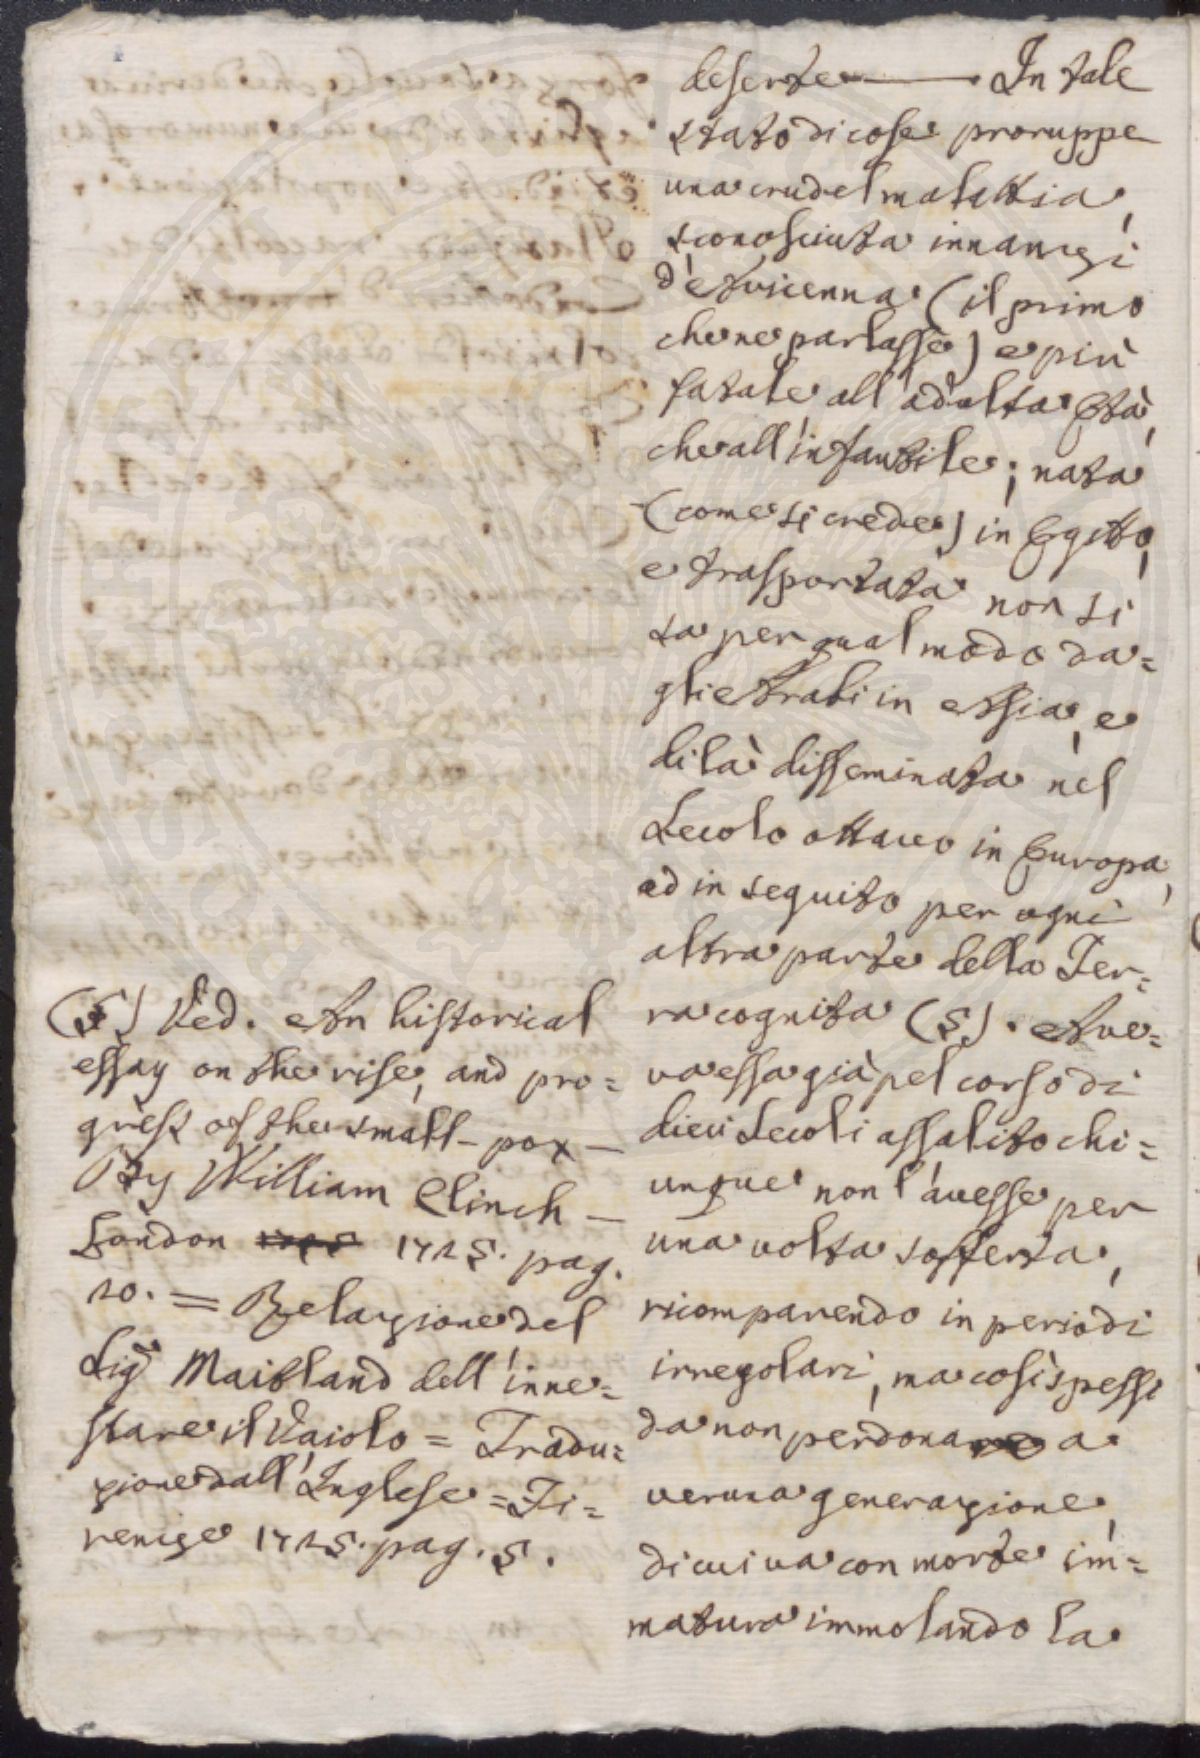 deserte ——— In tale
stato di cose proruppe
una crudel malattia,
sconosciuta innanzi
d'Avicenna (il primo
che ne parlasse) e più
fatale all'adulta Età,
che all'infantile; nata
(come si crede) in Egitto,
e trasportata non si
sa per qual modo da=
gli Arabi in Assia, e
di là disseminata nel
Secolo ottavo in Europa,
ed in seguito per ogni
altra parte della Ter=
ra cognita (5). Ave=
va essa già pel corso di
dieci Secoli assalito chi=
unque non l'avesse per
una volta sofferta,
ricomparendo in periodi
irregolari, ma così spessi
da non perdona a
veruna generazione,
di cui va con morte im=
matura immolando la
(5) Ved. An historical
essay on the rise, and pro=
gress of the small-pox —
By William Clinch —
London 1725. pag.
10. = Relazione del
Sig.r Maitland dell'inne=
stare il Vaiolo = Tradu=
zione dall'Inglese = Fi=
renze 1725. pag. 5.